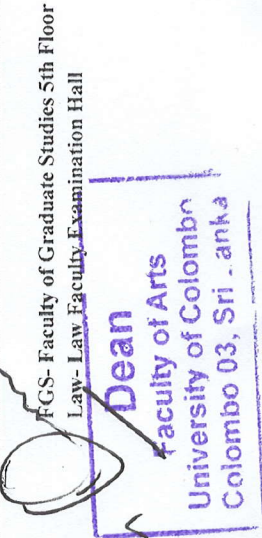 FGS- Faculty of Graduate Studies 5th Floor
Law- Law Faculty Examination Hall
Dean
Faculty of Arts
University of Colombo
Colombo 03, Sri . anka